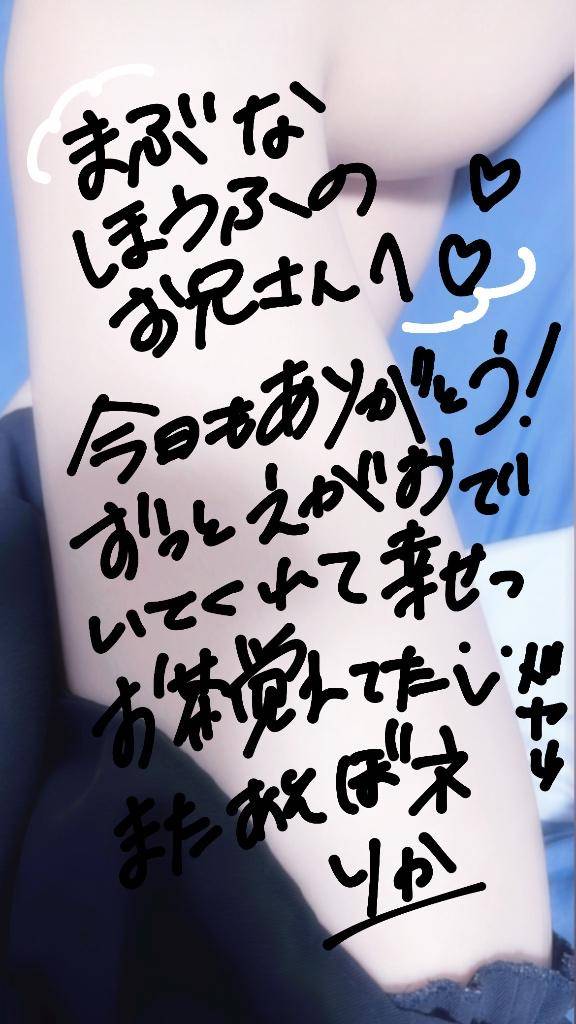 まぶな
ほうふの
お兄さんへ♡♡
今日もありがとう!
ずっとえがおで
いてくれて幸せっ
お茶覚えてたし
またあそぼネ
りか